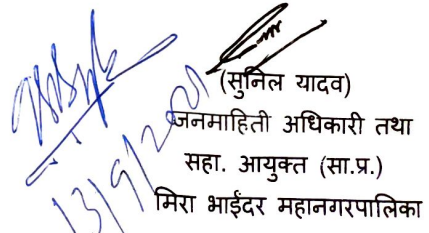 (सुनिल यादव)
जनमाहिती अधिकारी तथा
सहा. आयुक्त (सा.प्र.)
मिरा भाईंदर महानगरपालिका